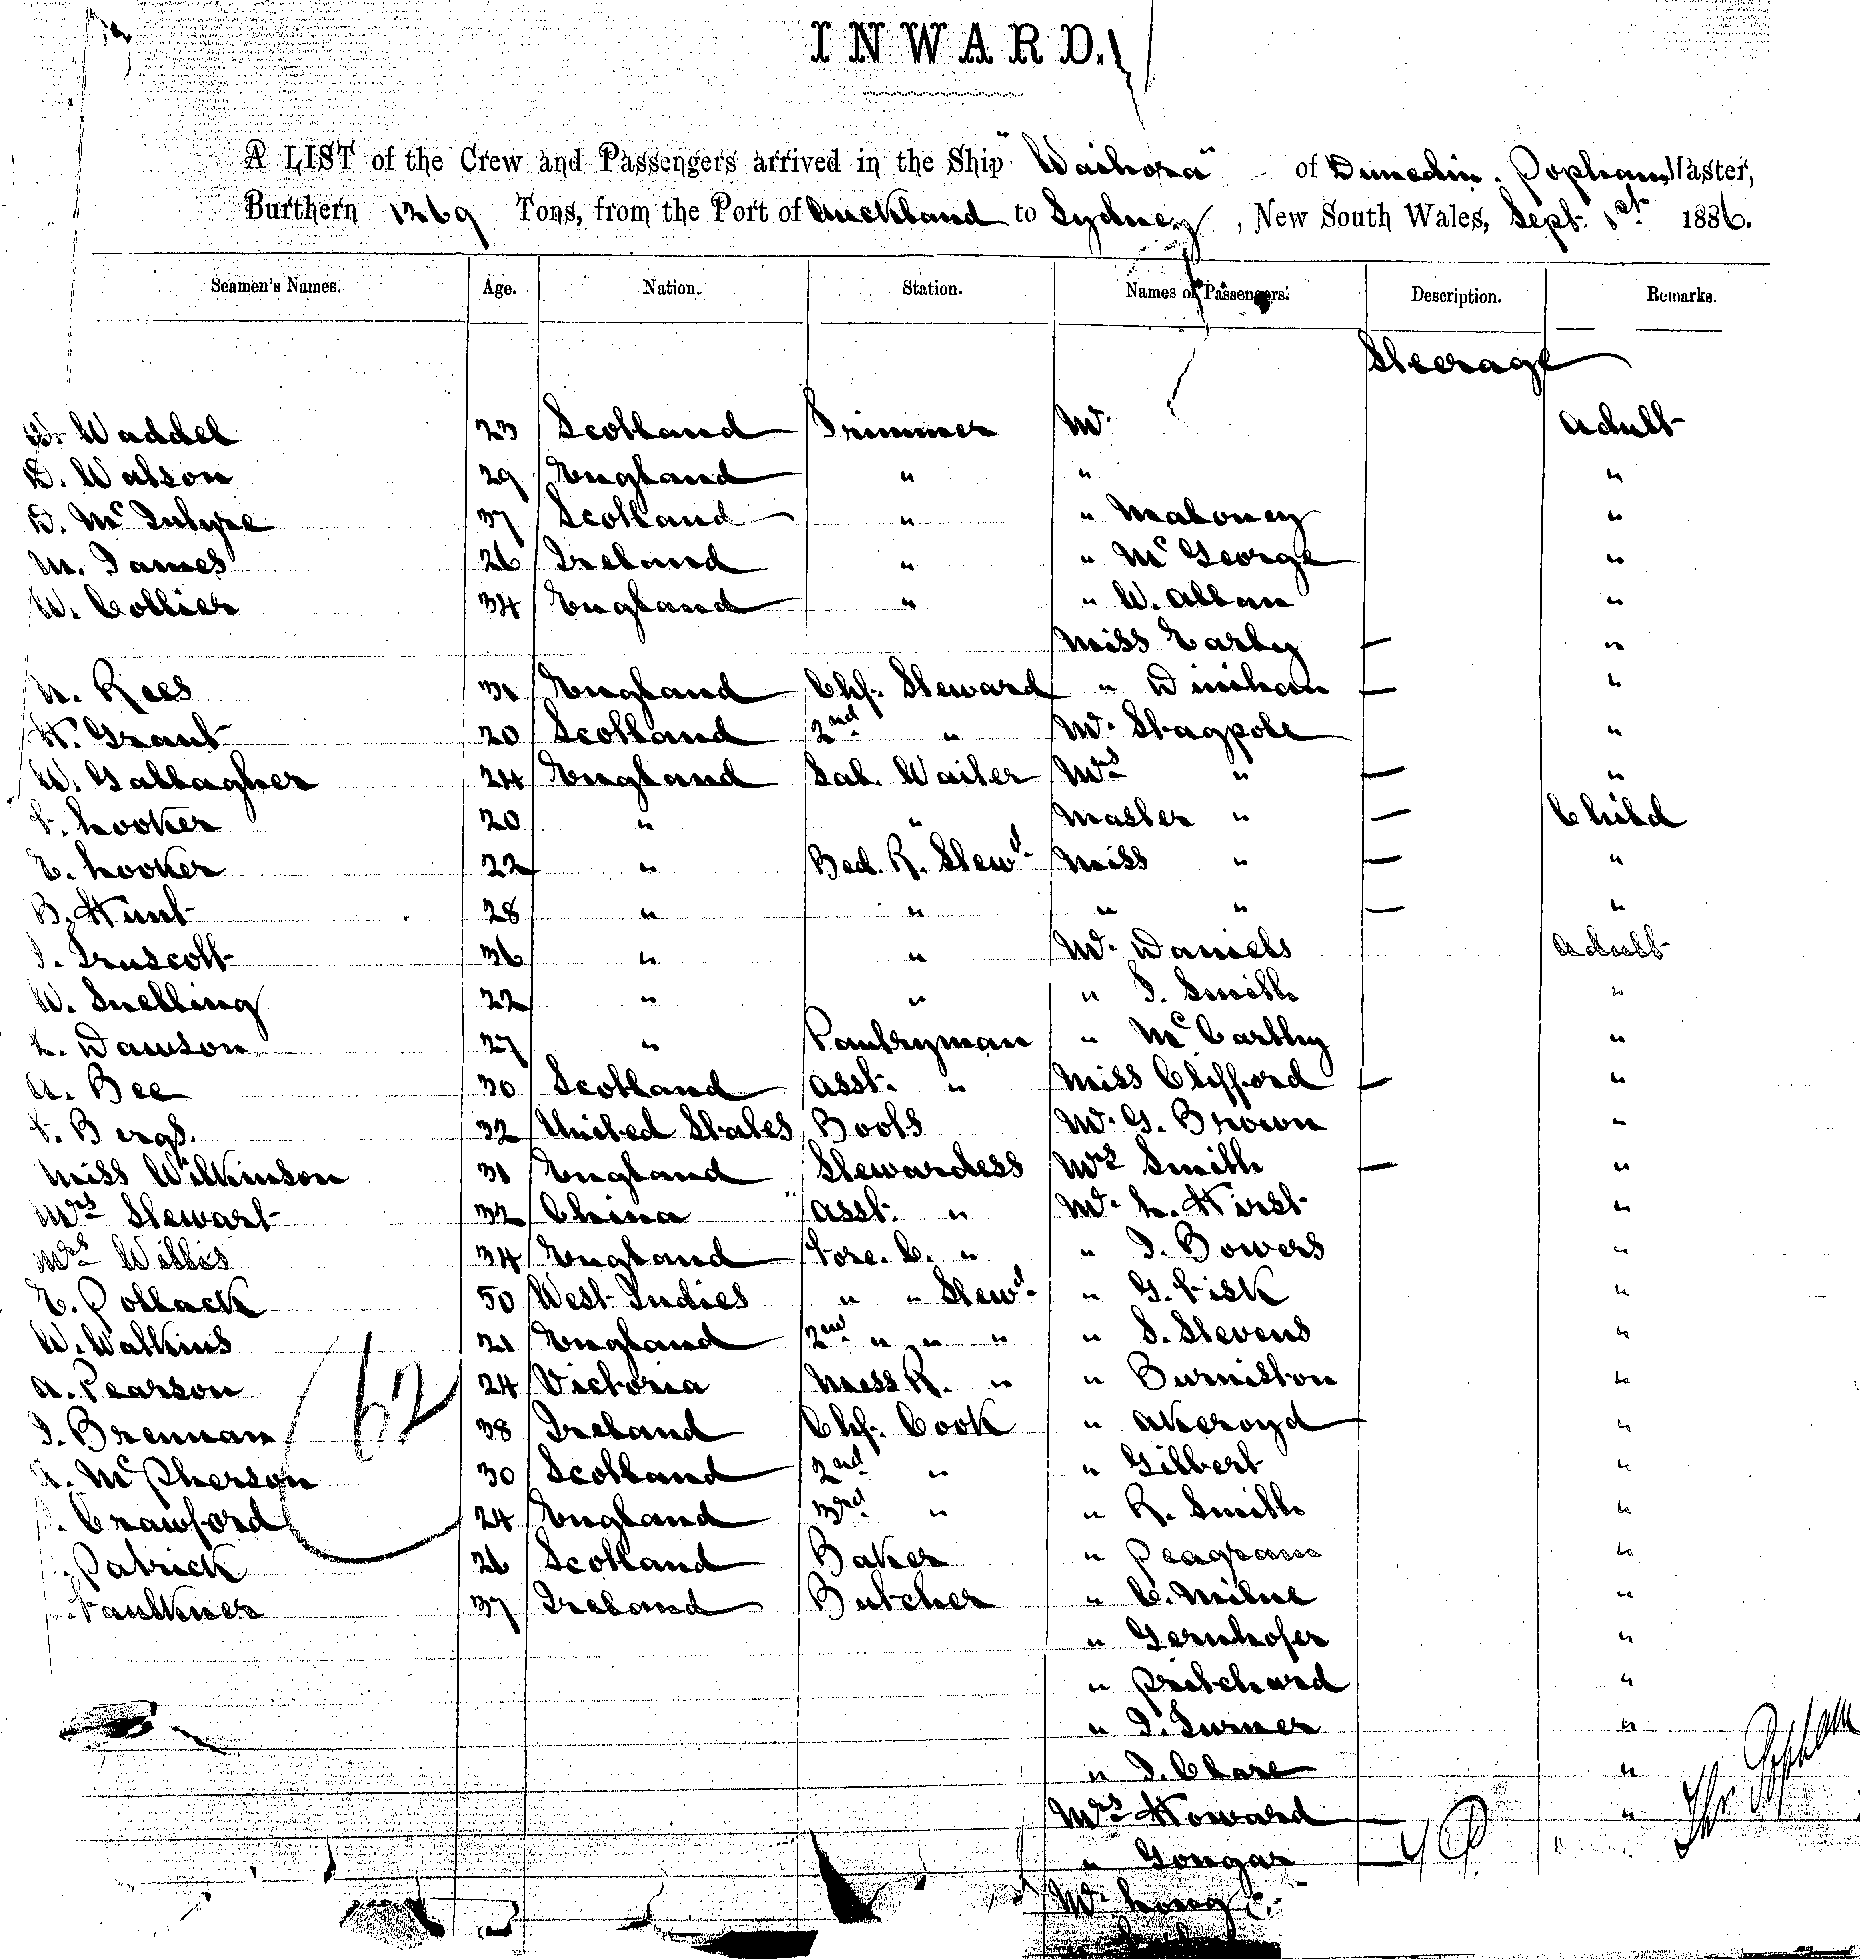 INWARD.
A LIST of the Crew and Passengers arrived in the Ship "Waihora" of Dunedin. Popham Master,
Burthern 1269 Tons, from the Port of Auckland to Sydney, New South Wales, Sept. 1st 1886.
Seamen's Names. Age. Nation. Station. Names of Passengers. Description. Remarks.
Steerage
Waddel 23 Scotland Trimmer Mr. Adult
D. Watson 29 England " " "
D. McIntyre 37 Scotland " " Maloney "
M. James 26 Ireland " " McGeorge "
W. Collier 34 England " " W. Allan "
Miss Early — "
Rees 31 England Chf. Steward " Dinihan — "
K. Grant 20 Scotland 2nd " Mr. Stagpole "
W. Gallagher 24 England Sal. Waiter Mrs " — "
F. Looker 20 " " Master " — Child
E. Looker 22 " Bed. R. Stewd. Miss " — "
B. Hunt 28 " " " " — "
J. Truscott 36 " " Mr. Daniels Adult
W. Snelling 22 " " " J. Smith "
L. Dawson 27 " Pantryman " McCarthy "
A. Bee 30 Scotland Asst. " Miss Clifford — "
F. Bergs. 32 United States Boots Mr. G. Brown "
Miss Wilkinson 31 England Stewardess Mrs Smith — "
Mrs Stewart 32 China Asst. " Mr. L. Hirst "
Mrs Willis 34 England Fore. C. " " J. Bowers "
E. Pollack 50 West Indies " " Stewd. " G. Fisk "
W. Watkins 21 England 2nd " " " " S. Stevens "
A. Pearson 24 Victoria Mess R. " " Burniston "
J. Brennan 38 Ireland Chf. Cook " Akeroyd "
A. McPherson 30 Scotland 2nd " " Gilbert "
Crawford 24 England 3rd " " R. Smith "
Patrick 26 Scotland Baker " Peagram "
Faulkner 37 Ireland Butcher " C. Milne "
62
" Gernhofer "
" Pritchard "
" J. Turner "
" J. Clare "
Mrs Howard — "
" Gongar —
Mr. Long
Popham